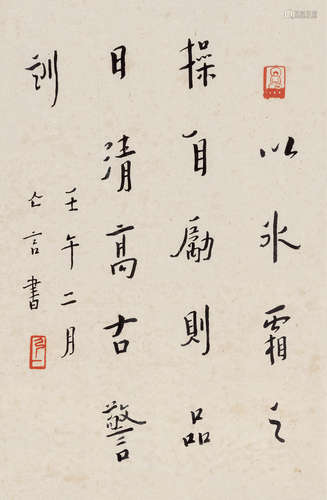 以冰霜之
操自勵則品
日清高古警
訓
壬午二月
亡言書